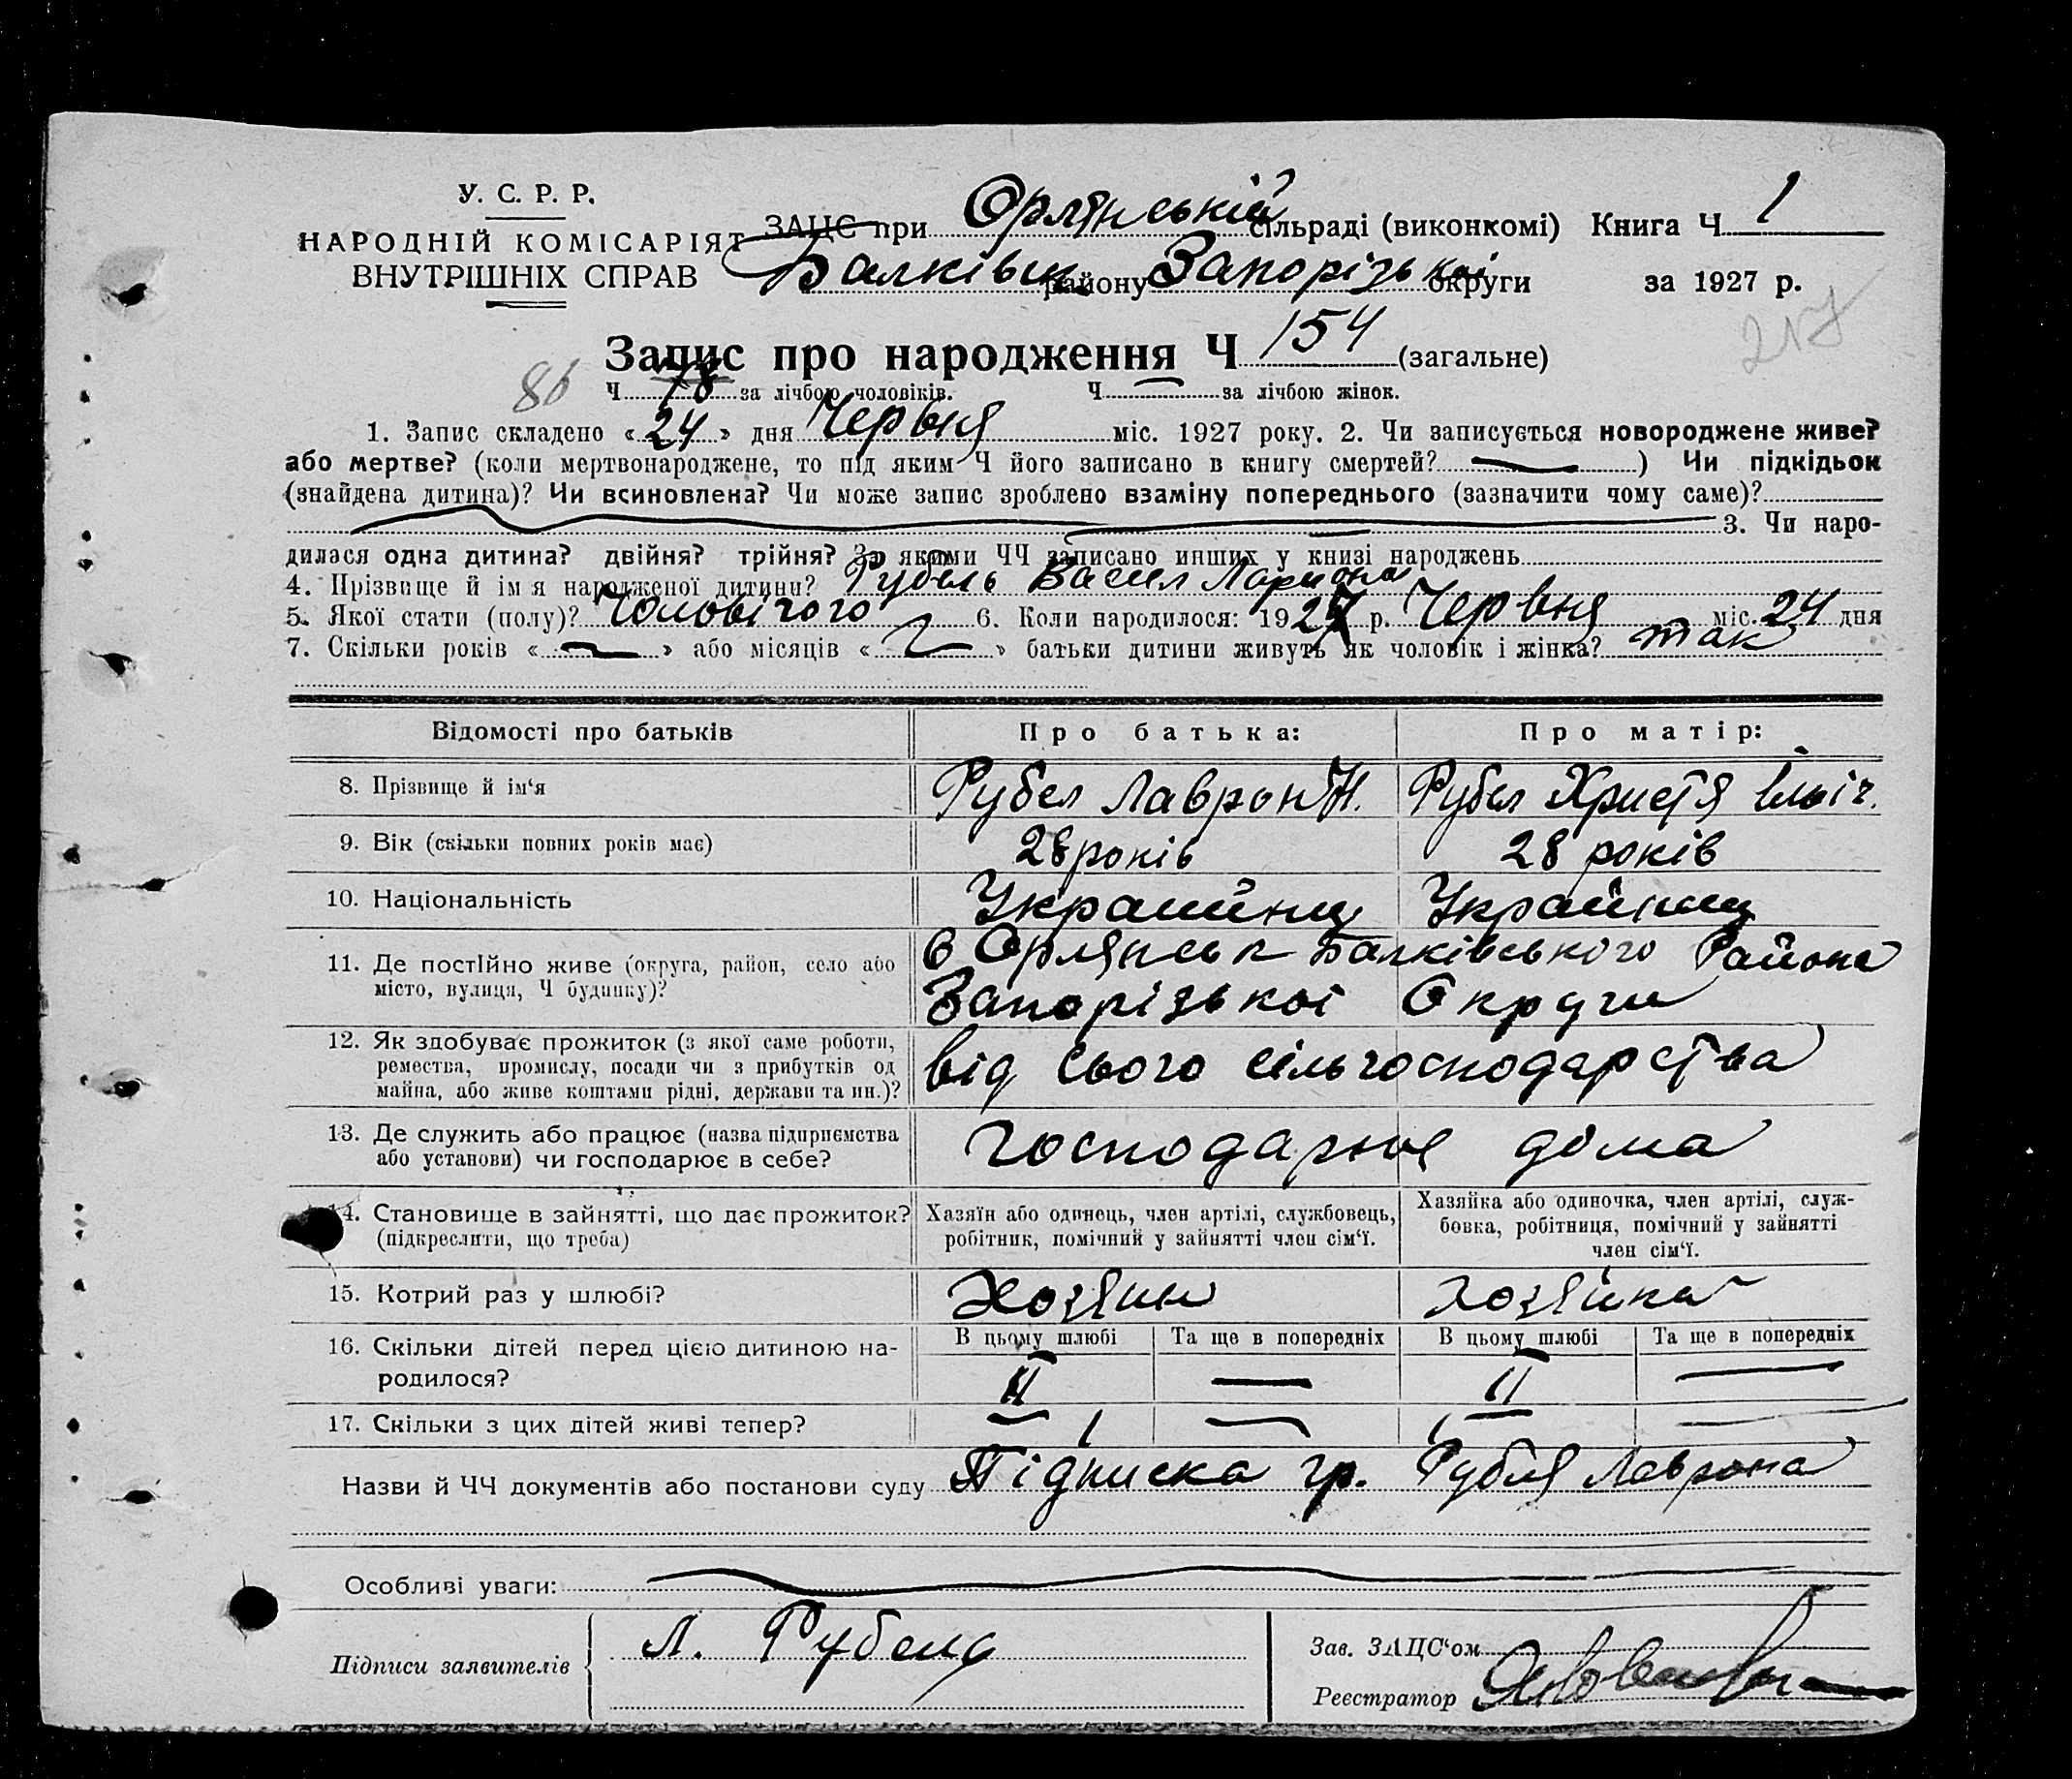 У. С. Р. Р.
НАРОДНІЙ КОМІСАРІЯТ
ВНУТРІШНІХ СПРАВ
ЗАЦС при Орлянській сільраді (виконкомі) Книга Ч 1
району Запорізької округи за 1927 р.
217
Запис про народження Ч 154 (загальне)
86 Ч 78 за лічбою чоловіків. Ч — за лічбою жінок.
1. Запис складено «24» дня Червня міс. 1927 року. 2. Чи записується новороджене живе?
або мертве? (коли мертвонароджене, то під яким Ч його записано в книгу смертей? — ) Чи підкідьок
(знайдена дитина)? Чи всиновлена? Чи може запис зроблено взаміну попереднього (зазначити чому саме)?
3. Чи наро-
дилася одна дитина? двійня? трійня? За якими ЧЧ записано инших у книзі народжень
4. Прізвище й ім я народженої дитини? Рубель Васил
5. Якої стати (полу)? Чоловічого 6. Коли народилося: 1927 р. Червня міс. 24 дня
7. Скільки років « — » або місяців « — » батьки дитини живуть як чоловік і жінка? так
Відомості про батьків Про батька: Про матір:
8. Прізвище й ім'я Рубел Лаврон Н. Рубел Христя Ільіч.
9. Вік (скільки повних років має) 28 років 28 років
10. Національність
11. Де постійно живе (округа, район, село або В Орлянськ Балківського Района
місто, вулиця, Ч будинку)? Запорізької Округи
12. Як здобуває прожиток (з якої саме роботи,
ремества, промислу, посади чи з прибутків од від сього сільгосподарства
майна, або живе коштами рідні, держави та ин.)?
13. Де служить або працює (назва підприємства
або установи) чи господарює в себе? господарює дома
14. Становище в зайнятті, що дає прожиток? Хазяїн або одинець, член артілі, службовець, Хазяйка або одиночка, член артілі, служ-
(підкреслити, що треба) робітник, помічний у зайнятті член сім'ї. бовка, робітниця, помічний у зайнятті
член сім'ї.
15. Котрий раз у шлюбі? Хозяин Хозяйка
16. Скільки дітей перед цією дитиною на- В цьому шлюбі Та ще в попередніх В цьому шлюбі Та ще в попередніх
родилося? II — II —
17. Скільки з цих дітей живі тепер? — —
Назви й ЧЧ документів або постанови суду Підписка гр. Рубля Лаврона
Особливі уваги:
Підписи заявителів Л. Рубель
Зав. ЗАЦС'ом
Реєстратор